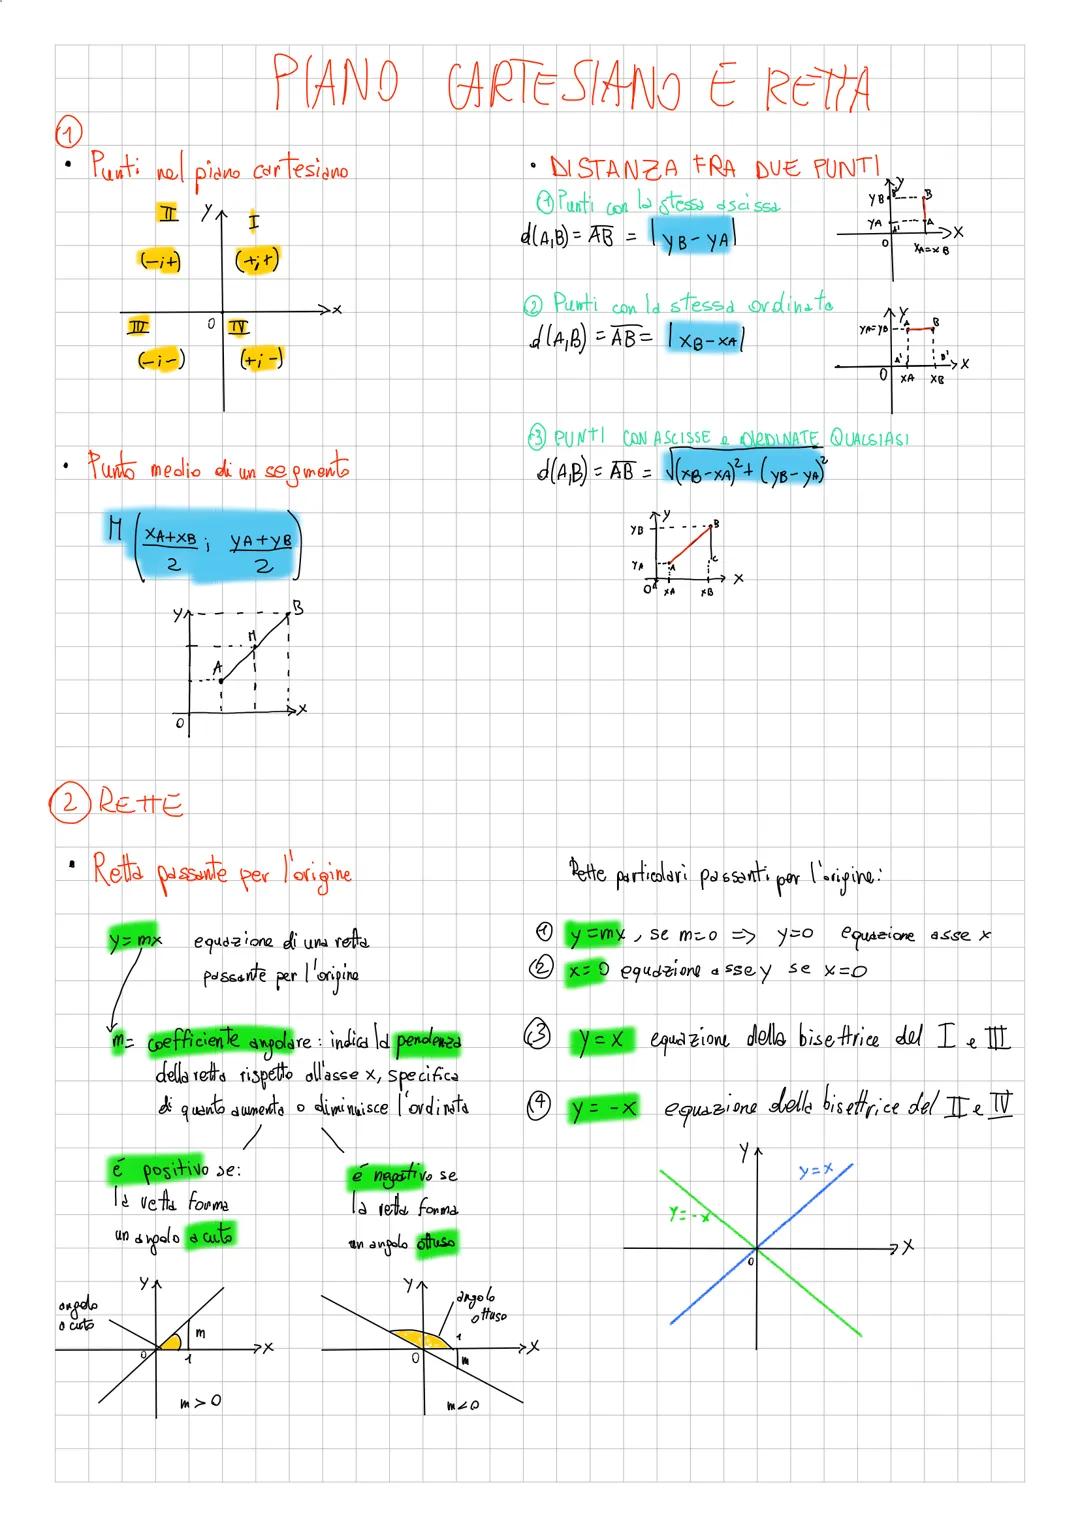 PIANO CARTESIANO E RETTA
1
• Punti nel piano cartesiano
II
y
I
(-;+)
(+;+)
x
III
0
IV
(-;-)
(+;-)
• DISTANZA FRA DUE PUNTI
① Punti con la stessa ascissa
d(A,B) = AB = |yB-yA|
y
yB B' B
yA A' A
0 x
xA=xB
② Punti con la stessa ordinata
d(A,B) = AB = |xB-xA|
y
yA=yB A B
A' B' x
0 xA xB
③ PUNTI CON ASCISSE e ORDINATE QUALSIASI
d(A,B) = AB = √(xB-xA)²+(yB-yA)²
y
yB B
yA A C
0 xA xB x
• Punto medio di un segmento
M (xA+xB ; yA+yB)
2 2
y B
M
A
0 x
② RETTE
• Retta passante per l'origine
y=mx equazione di una retta
passante per l'origine
m= coefficiente angolare: indica la pendenza
della retta rispetto all'asse x, specifica
di quanto aumenta o diminuisce l'ordinata
é positivo se:
la retta forma
un angolo acuto
é negativo se
la retta forma
un angolo ottuso
y
angolo
acuto
m
0 1 x
m>0
y
angolo
ottuso
1
0 m x
m<0
Rette particolari passanti per l'origine:
① y=mx, se m=0 => y=0 equazione asse x
② x=0 equazione asse y se x=0
③ y=x equazione della bisettrice del I e III
④ y=-x equazione della bisettrice del II e IV
y
y=x
y=-x
0 x